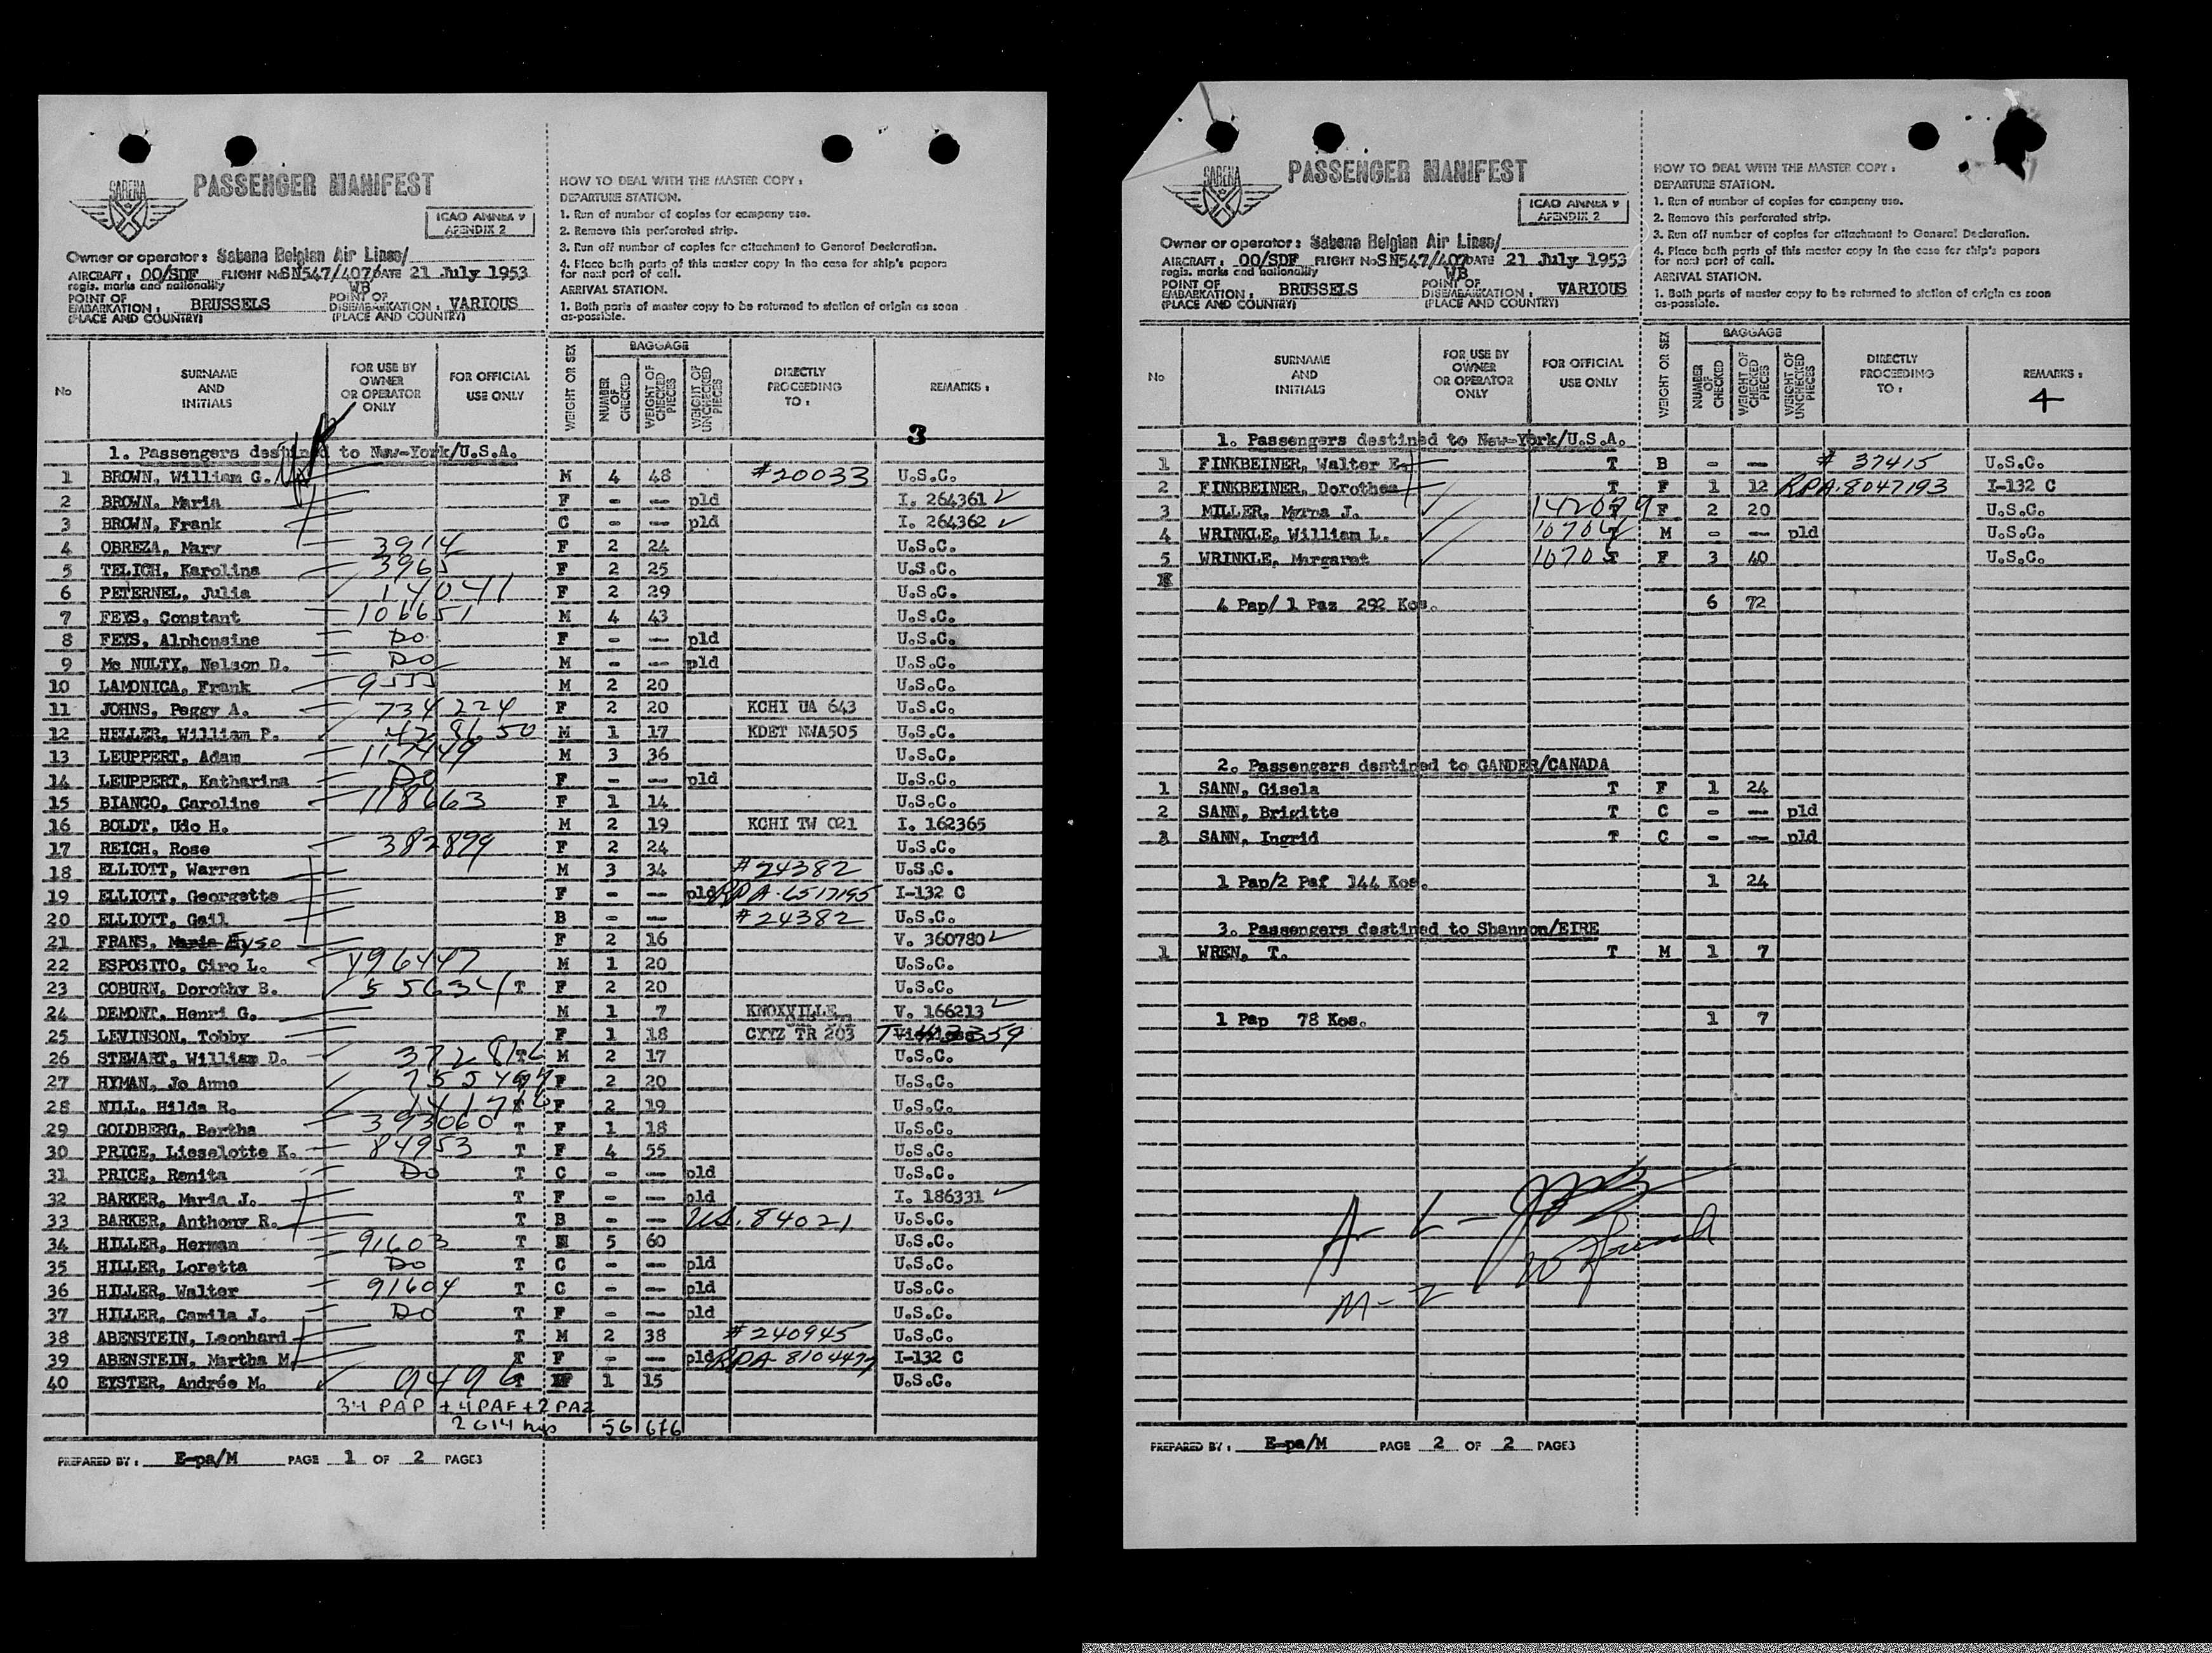 SABENA
PASSENGER MANIFEST
ICAO ANNEX 9
APENDIX 2
Owner or operator : Sabena Belgian Air Lines/
AIRCRAFT : OO/SDF FLIGHT No SN547/407 DATE 21 July 1953
regis. marks and nationality WB
POINT OF EMBARKATION : BRUSSELS POINT OF DISEMBARKATION : VARIOUS
(PLACE AND COUNTRY) (PLACE AND COUNTRY)
HOW TO DEAL WITH THE MASTER COPY :
DEPARTURE STATION.
1. Run of number of copies for company use.
2. Remove this perforated strip.
3. Run off number of copies for attachment to General Declaration.
4. Place both parts of this master copy in the case for ship's papers
for next port of call.
ARRIVAL STATION.
1. Both parts of master copy to be returned to station of origin as soon
as-possible.
No SURNAME AND INITIALS FOR USE BY OWNER OR OPERATOR ONLY FOR OFFICIAL USE ONLY WEIGHT OR SEX BAGGAGE NUMBER OF CHECKED WEIGHT OF CHECKED PIECES WEIGHT OF UNCHECKED PIECES DIRECTLY PROCEEDING TO : REMARKS :
3
1. Passengers destined to New-York/U.S.A.
1 BROWN, William G. M 4 48 #20033 U.S.C.
2 BROWN, Maria F - -- pld I. 264361
3 BROWN, Frank C - -- pld I. 264362
4 OBREZA, Mary 3914 F 2 24 U.S.C.
5 TELICH, Karolina 3965 F 2 25 U.S.C.
6 PETERNEL, Julia 14041 F 2 29 U.S.C.
7 FEYS, Constant 106651 M 4 43 U.S.C.
8 FEYS, Alphonsine Do F - -- pld U.S.C.
9 Mc NULTY, Nelson D. Do M - -- pld U.S.C.
10 LAMONICA, Frank 9555 M 2 20 U.S.C.
11 JOHNS, Peggy A. 734224 F 2 20 KCHI UA 643 U.S.C.
12 HELLER, William P. M 1 17 KDET NWA505 U.S.C.
13 LEUPPERT, Adam 117449 M 3 36 U.S.C.
14 LEUPPERT, Katharina Do F - -- pld U.S.C.
15 BIANCO, Caroline 118663 F 1 14 U.S.C.
16 BOLDT, Udo H. M 2 19 KCHI TW 021 I. 162365
17 REICH, Rose 382899 F 2 24 U.S.C.
18 ELLIOTT, Warren M 3 34 #24382 U.S.C.
19 ELLIOTT, Georgette F - -- pld RPA-6517195 I-132 C
20 ELLIOTT, Gail B - -- #24382 U.S.C.
21 FRANS, Maria F 2 16 V. 360780
22 ESPOSITO, Ciro L. 496447 M 1 20 U.S.C.
23 COBURN, Dorothy B. 55634 T F 2 20 U.S.C.
24 DEMONT, Henri G. M 1 7 KNOXVILLE V. 166213
25 LEVINSON, Tobby F 1 18 CYYZ TR 203
26 STEWART, William D. T M 2 17 U.S.C.
27 HYMAN, Jo Anne F 2 20 U.S.C.
28 NILL, Hilda R. F 2 19 U.S.C.
29 GOLDBERG, Bertha 393060 T F 1 18 U.S.C.
30 PRICE, Lieselotte K. 84953 T F 4 55 U.S.C.
31 PRICE, Renita Do T C - -- pld U.S.C.
32 BARKER, Maria J. T F - -- pld I. 186331
33 BARKER, Anthony R. T B - -- US. 84021 U.S.C.
34 HILLER, Herman 91603 T M 5 60 U.S.C.
35 HILLER, Loretta Do T C - -- pld U.S.C.
36 HILLER, Walter 91604 T C - -- pld U.S.C.
37 HILLER, Camila J. Do T F - -- pld U.S.C.
38 ABENSTEIN, Leonhard T M 2 38 #240945 U.S.C.
39 ABENSTEIN, Martha M. T F - -- pld RPA 8104477 I-132 C
40 EYSTER, Andrée M. 9496 T F 1 15 U.S.C.
34 PAP + 4 PAF + 2 PAZ
2614 kgs 56 676
PREPARED BY : E-pa/M PAGE 1 OF 2 PAGES
SABENA
PASSENGER MANIFEST
ICAO ANNEX 9
APENDIX 2
Owner or operator : Sabena Belgian Air Lines/
AIRCRAFT : OO/SDF FLIGHT No SN547/407 DATE 21 July 1953
regis. marks and nationality WB
POINT OF EMBARKATION : BRUSSELS POINT OF DISEMBARKATION : VARIOUS
(PLACE AND COUNTRY) (PLACE AND COUNTRY)
HOW TO DEAL WITH THE MASTER COPY :
DEPARTURE STATION.
1. Run of number of copies for company use.
2. Remove this perforated strip.
3. Run off number of copies for attachment to General Declaration.
4. Place both parts of this master copy in the case for ship's papers
for next port of call.
ARRIVAL STATION.
1. Both parts of master copy to be returned to station of origin as soon
as-possible.
No SURNAME AND INITIALS FOR USE BY OWNER OR OPERATOR ONLY FOR OFFICIAL USE ONLY WEIGHT OR SEX BAGGAGE NUMBER OF CHECKED WEIGHT OF CHECKED PIECES WEIGHT OF UNCHECKED PIECES DIRECTLY PROCEEDING TO : REMARKS :
4
1. Passengers destined to New-York/U.S.A.
1 FINKBEINER, Walter E. T B - -- # 37415 U.S.C.
2 FINKBEINER, Dorothea T F 1 12 RPA.8047193 I-132 C
3 MILLER, Myrna J. F 2 20 U.S.C.
4 WRINKLE, William L. 10704 T M - -- pld U.S.C.
5 WRINKLE, Margaret 10705 T F 3 40 U.S.C.
4 Pap/ 1 Paz 292 Kos. 6 72
2. Passengers destined to GANDER/CANADA
1 SANN, Gisela T F 1 24
2 SANN, Brigitte T C - -- pld
3 SANN, Ingrid T C - -- pld
1 Pap/2 Paf 144 Kos. 1 24
3. Passengers destined to Shannon/EIRE
1 WREN, T. T M 1 7
1 Pap 78 Kos. 1 7
A-L-
M-Z
PREPARED BY : E-pa/M PAGE 2 OF 2 PAGES